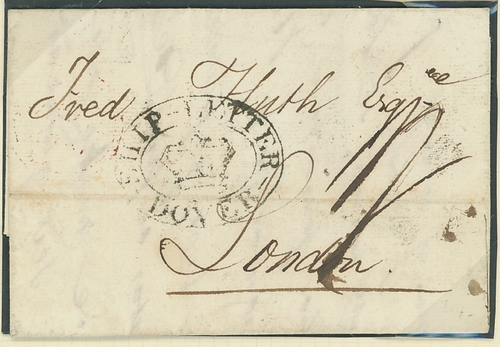 Fred. Huth Esqre
SHIP-LETTER
DOVER
London.